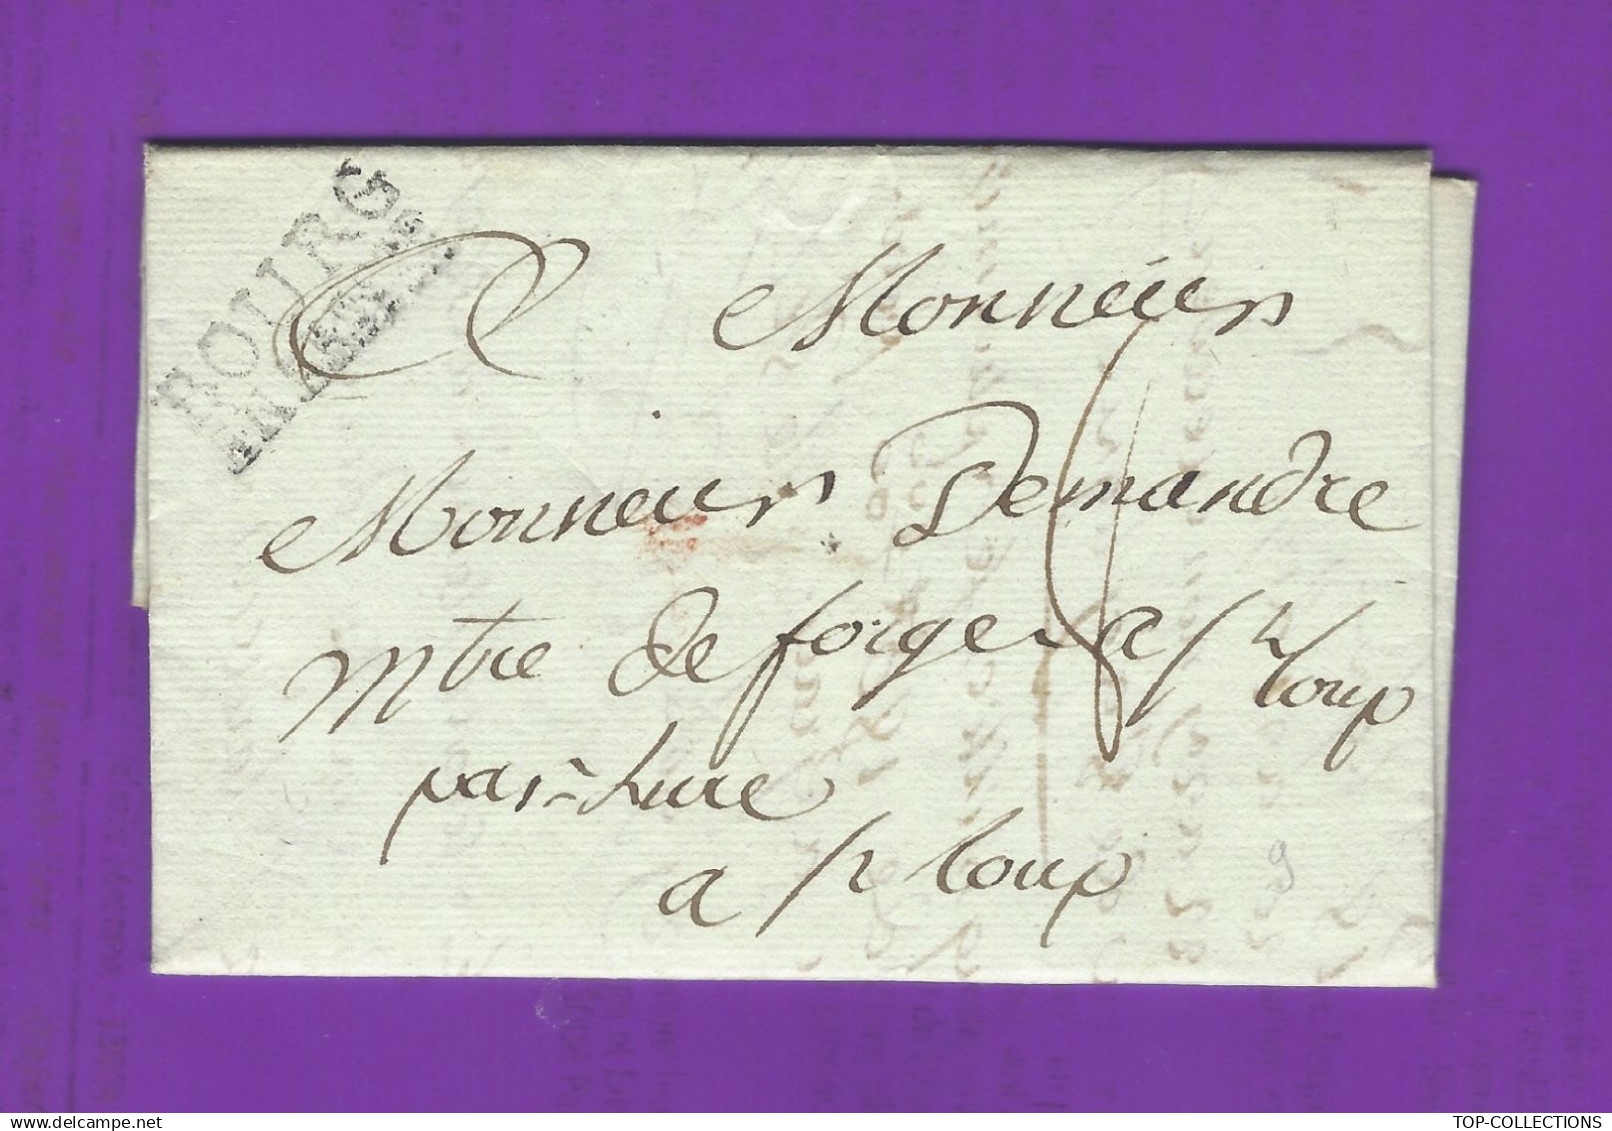 BOURG
EN BRESSE
Monsieur
Monsieur Demandre
Mtre de forge a St loup
par Lure
a St loup
9
TOP-COLLECTIONS